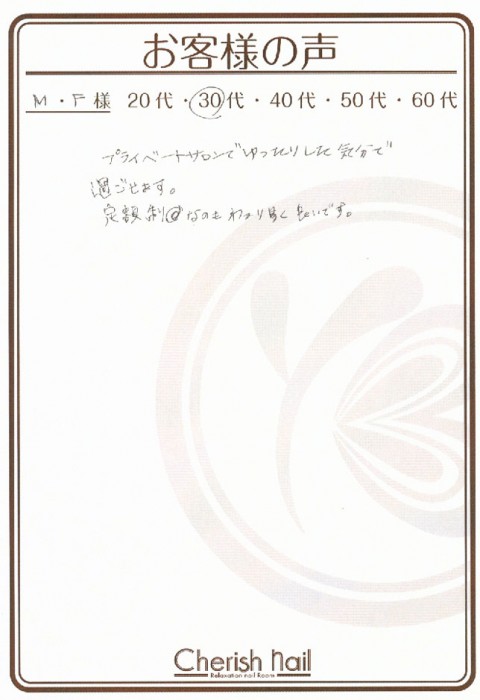 お客様の声
M・F様 20代・30代・40代・50代・60代
プライベートサロンでゆったりした気分で
過ごせます。
定額制なのもわかり易く良いです。
Cherish nail
Relaxation nail Room